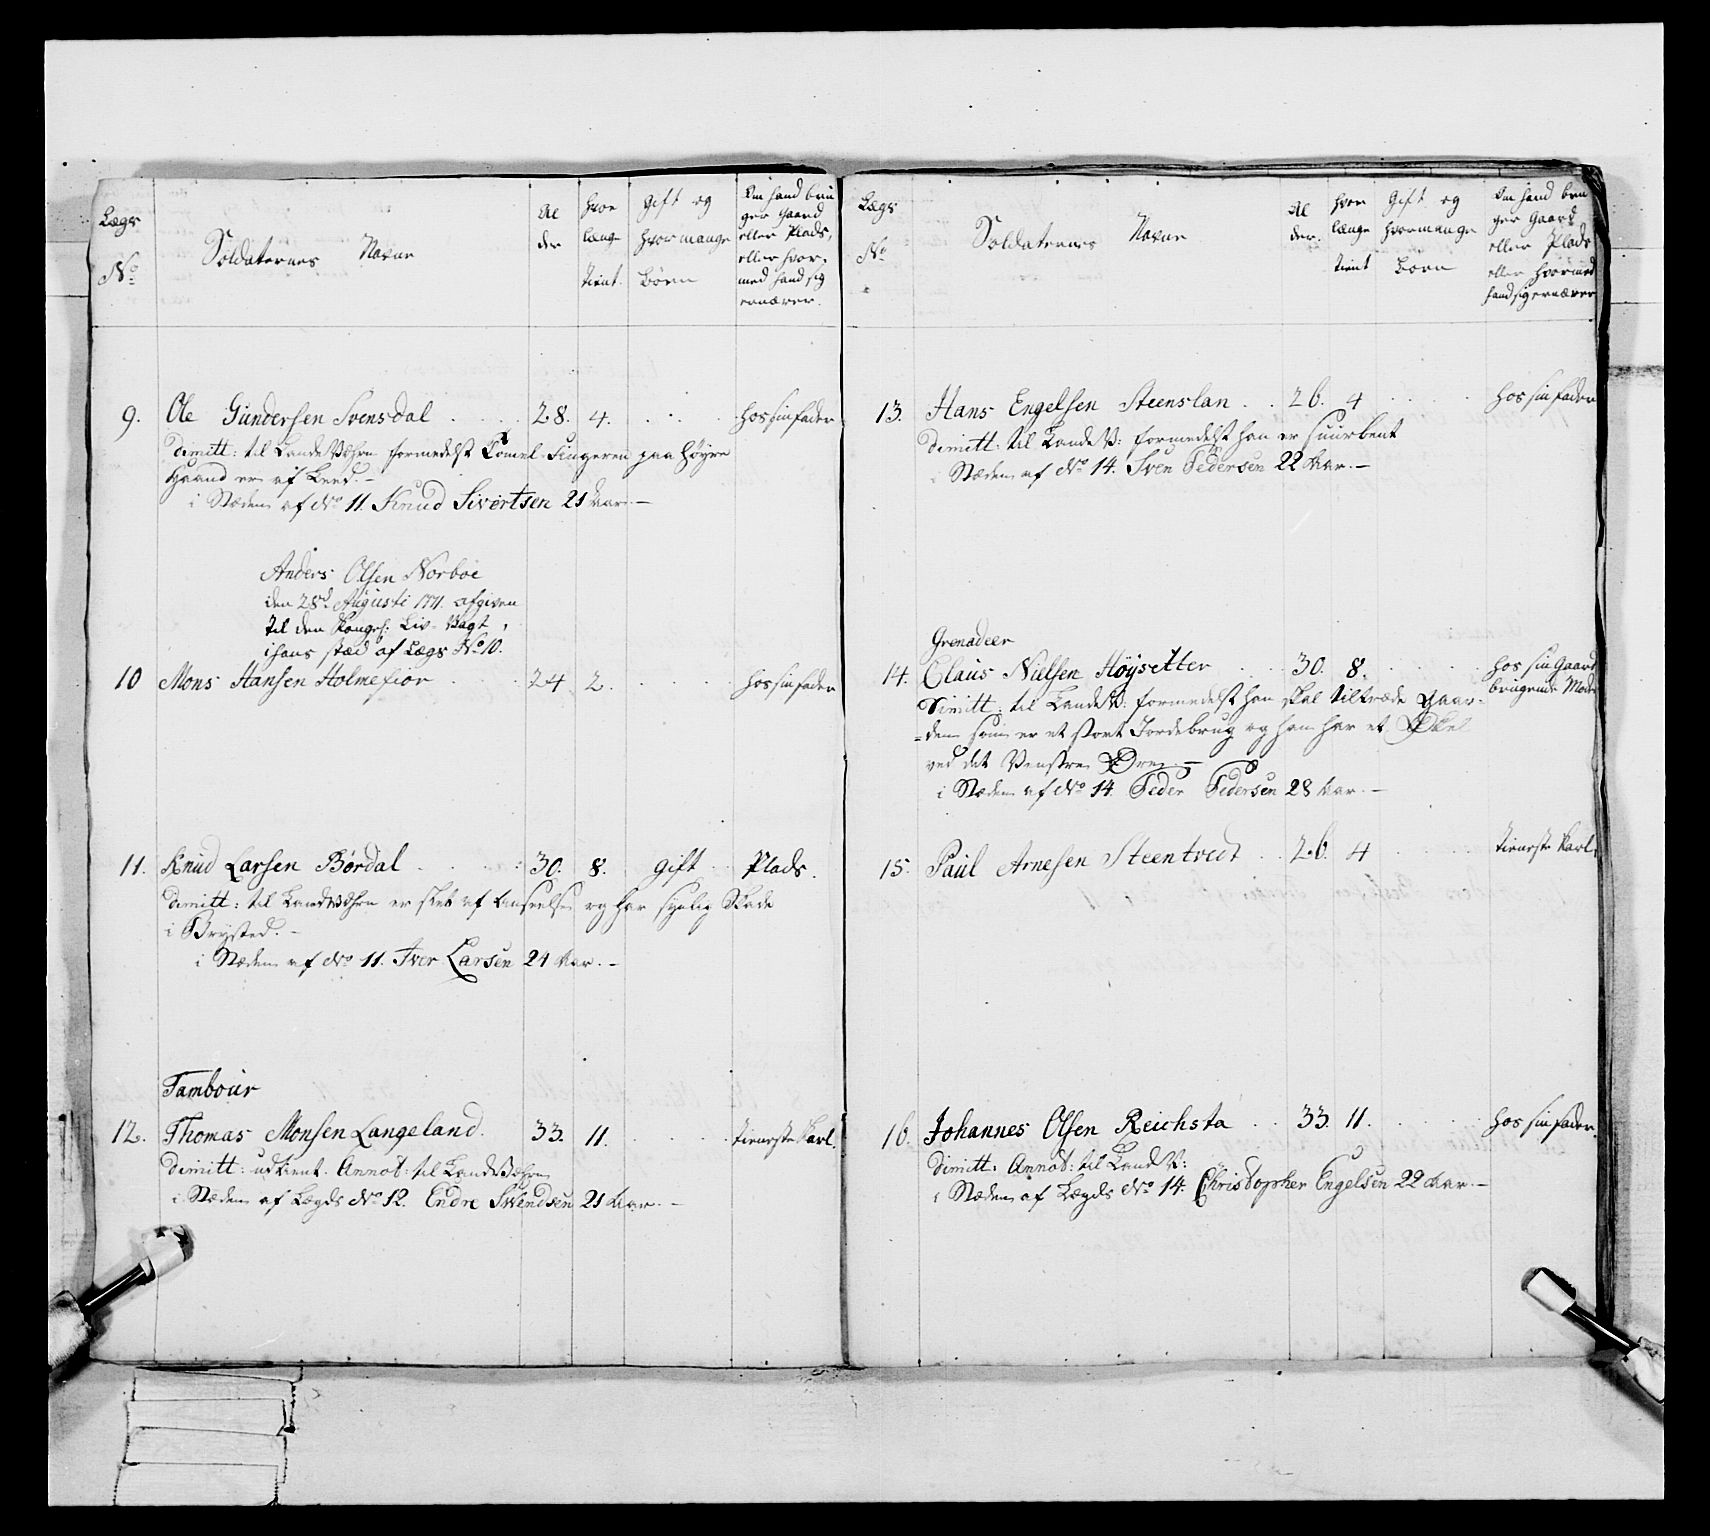 Lægs
No
Soldaternes Navne
Al
der
hvor
længe
tient.
Gift og
hvormange
Börn
Om hand bru
ger Gaard
eller Plads,
eller hvor,
med hand sig
ernærer.
9. Ole Gundersen Svensdal 28. 4. hos sin fader
Dimitt: til Lande Væhrn formedelst Tomel Fingeren paa Høyre
Haand er af Leed. –
i Stæden af No 11. Knud Sivertsen 21 Aar –
Anders Olsen Norboe
den 28d Augusti 1771. afgiven
til den Kongel: Liv-Vagt,
i hans stæd af Lægs No 10.
10 Mons Hansen Holmefior 24 2. hos sin fader
11. Knud Larsen Børdal 30. 8. gift Plads.
Dimitt: til Land Væhrn er slet af Anseelse og har synlig Skade
i Brysted. –
i Stæden af No 11. Iver Larsen 24 Aar. –
Tambour
12. Thomas Monsen Langeland. 33. 11. tieneste Karl.
Dimitt: udtient. Annot: til Land Væhrn
i Stæden af Lægds No 12. Endre Swendsen 21 Aar. –
Lægs
No
Soldaternes Navne
Al
der.
hvor
længe
tient
Gift og
hvormange
Börn
Om hand bru
ger Gaard
eller Plads
eller hvormed
hand sig ernærer
13. Hans Engelsen Steenslan 26. 4 hos sin fader
Dimitt: til Lande V: formedelst han er skuurbent
i Stæden af No 14. Sven Pedersen 22 Aar. –
Grenadeer
14. Claus Nielsen Höysetter 30. 8. hos sin Gaard
brugende Moder
Dimitt: til Lande V: formedelst han skal tiltræde Gaar-
=den som er et stort Jordebrug og han har et
ved det Venstre Øre. –
i Stæden af No 14. Peder Pedersen 28 Aar. –
15. Paul Arnesen Steentvedt 26. 4 tieneste Karl.
16. Johannes Olsen Reichsta 33. 11. hos sin fader.
Dimitt: Annot: til Land V:
i Stæden af Lægds No 14. Christopher Engelsen 22 Aar. –